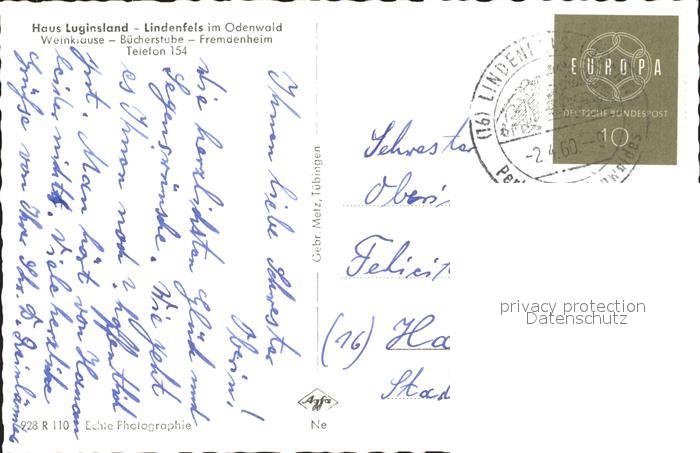 Haus Luginsland – Lindenfels im Odenwald
Weinklause – Bücherstube – Fremdenheim
Telefon 154
Ihnen liebe Schwester
Oberin!
die herzlichsten Glück und
Segenswünsche. Wie geht
es Ihnen noch? hoffentlich
gut. Man hört von Hanau
leider nichts. Viele herzliche
Grüße von Ihrer Schr. D.
Gebr. Metz, Tübingen
928 R 110 Echte Photographie
Agfa
Ne
(16) LINDENF
-2.4.60.-9
EUROPA
DEUTSCHE BUNDESPOST
10
Schwester
Oberi
Felici
(16) Ha
Stad
privacy protection
Datenschutz